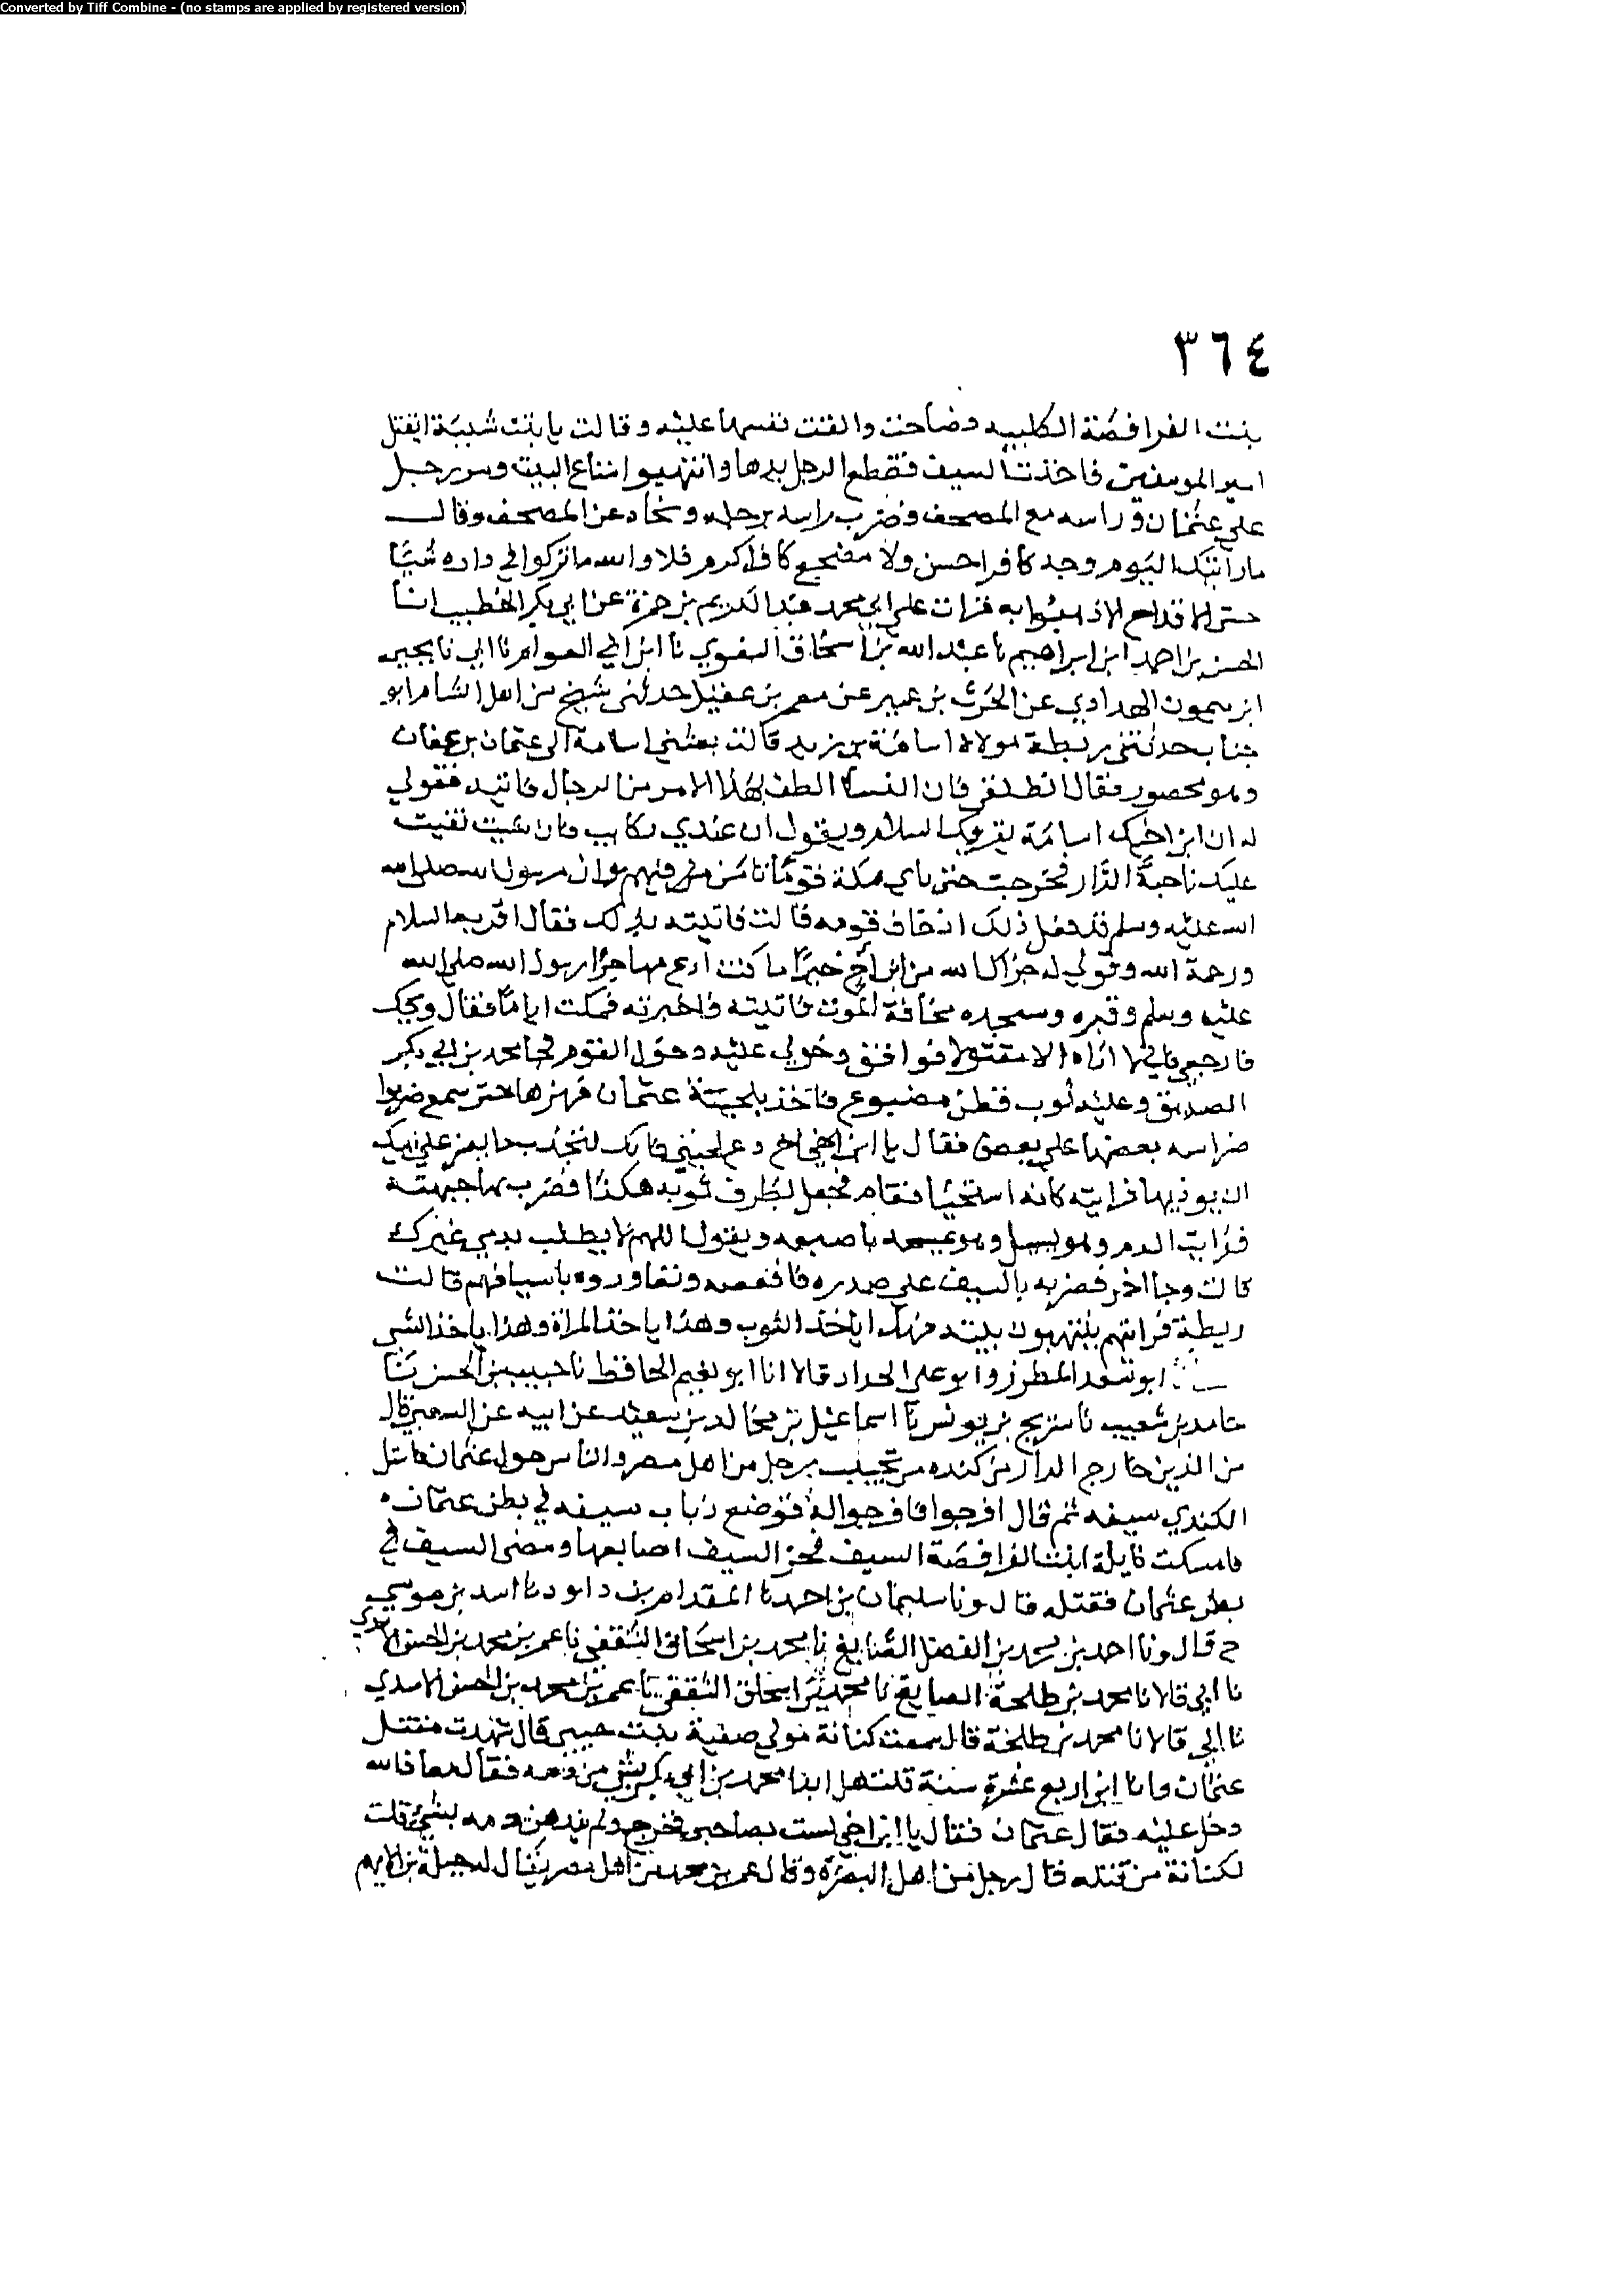 Converted by Tiff Combine - (no stamps are applied by registered version)
٣٦٤
بنت الفرافصة الكلبيه فصاحت والقت نفسها عليه وقالت يا بنت شيبة ايقتل
امير المومنين فاخذت السيف فقطع الرجل يدها وانتهبوا متاع البيت ومر رجل
على عثمان وراسه مع المصحف فضرب راسه برجله ونحاه عن المصحف وقال
ما رأيت كاليوم وجه كافر احسن ولا مضجع كافر اكرم فلا والله ما تركوا في داره شيًا
حتى الاقداح الا ذهبوا به قرات على ابي محمد عبد الكريم بن حمزة عن ابي بكر الخطيب انا
الحسن بن احمد ابن ابراهيم نا عبد الله بن اسحاق البغوي نا ابن ابي العوام نا ابي نا يحيى
ابن ميمون الهدادي عن الحرث بن عمير عن معمر بن عقيل حدثني شيخ من اهل الشام ابو
جناب حدثتني ريطة مولاة اسامة بن زيد قالت بعثني اسامة الى عثمان بن عفان
وهو محصور فقال انطلقي فان النسا الطف بهذا الامر من الرجال فاتيه فقولي
له ان ابن اخيك اسامة يقريك السلام ويقول ان عندي ... فان شيت نقبت
عليك ناحية الدار فخرجت حتى تاتي مكة قومًا تامن فيهم وان رسول الله صلى الله
الله عليه وسلم قد فعل ذلك اذ خاف قومه قالت فاتيته بذلك فقال اقريه السلام
ورحمة الله وقولي له جزاك الله من ابن اخ خيرًا ما كنت ادع مهاجر رسول الله صلى الله
عليه وسلم وقبره ومسجده مخافة الموت فاتيته فاخبرته فمكث ايامًا فقال ويحك
فارجعي فاني لا اراه الا مقتولا فوافق دخولي عليه دخول القوم فجا محمد بن ابي بكر
الصديق وعليه ثوب قطن مصبوغ فاخذ بلحية عثمان فهزها حتى سمع ضربوا
ضراسه بعضها على بعض فقال يا ابن اخي دع لحيتي فانك لتجذب ما يعز على ابيك
ان يوذيها فرايته كانه استحيا فقام فجعل بطرف ثوبه هكذا فضرب بها جبهته
فرايت الدم وهو يسيل وهو يمسحه باصبعه ويقول اللهم لا يطلب بدمي غيرك
قالت وجا اخر فضربه بالسيف على صدره فاقعصه وتعاوروه باسيافهم قالت
ريطة فرايتهم ينتهبون بيته فهذا ياخذ الثوب وهذا ياخذ المراة وهذا ياخذ الشي
ابو سعد المطرز وابو علي الحداد قالا انا ابو نعيم الحافظ نا حبيب بن الحسن نا
حامد بن شعيب نا سريج بن يونس نا اسماعيل بن مجالد بن سعيد عن ابيه عن الشعبي قال
من الذين خارج الدار من كنده من تجيب برجل من اهل مصر والناس حول عثمان فاستل
الكندي سيفه ثم قال افرجوا فافرجوا له فوضع ذباب سيفه في بطن عثمان
فامسكت نايلة ابنت الفرافصة السيف فحز السيف اصابعها ومضى السيف في
بطن عثمان فقتله قال ونا سليمان بن احمد نا المقدام بن داود نا اسد بن موسى
ح قال ونا احمد بن محمد بن الفضل الصايغ نا محمد بن اسحاق الثقفي نا عمر بن محمد بن الحسن الاسدي
نا ابي قالا نا محمد بن طلحة الصايغ نا محمد بن اسحاق الثقفي نا عمر بن محمد بن الحسن الاسدي
نا ابي قالا نا محمد بن طلحة قال سمعت كنانة مولى صفية بنت حيي قال شهدت مقتل
عثمان وانا ابن اربع عشرة سنة قلت هل اندا محمد بن ابي بكر بشي من دمه فقال معاذ الله
دخل عليه فقال عثمان فقال يا ابن اخي لست بصاحبي فخرج ولم يند من دمه بشي قلت
لكنانة من قتله قال رجل من اهل البصرة وقال عمر بن محمد من اهل مصر يقال له جبلة بن الايهم